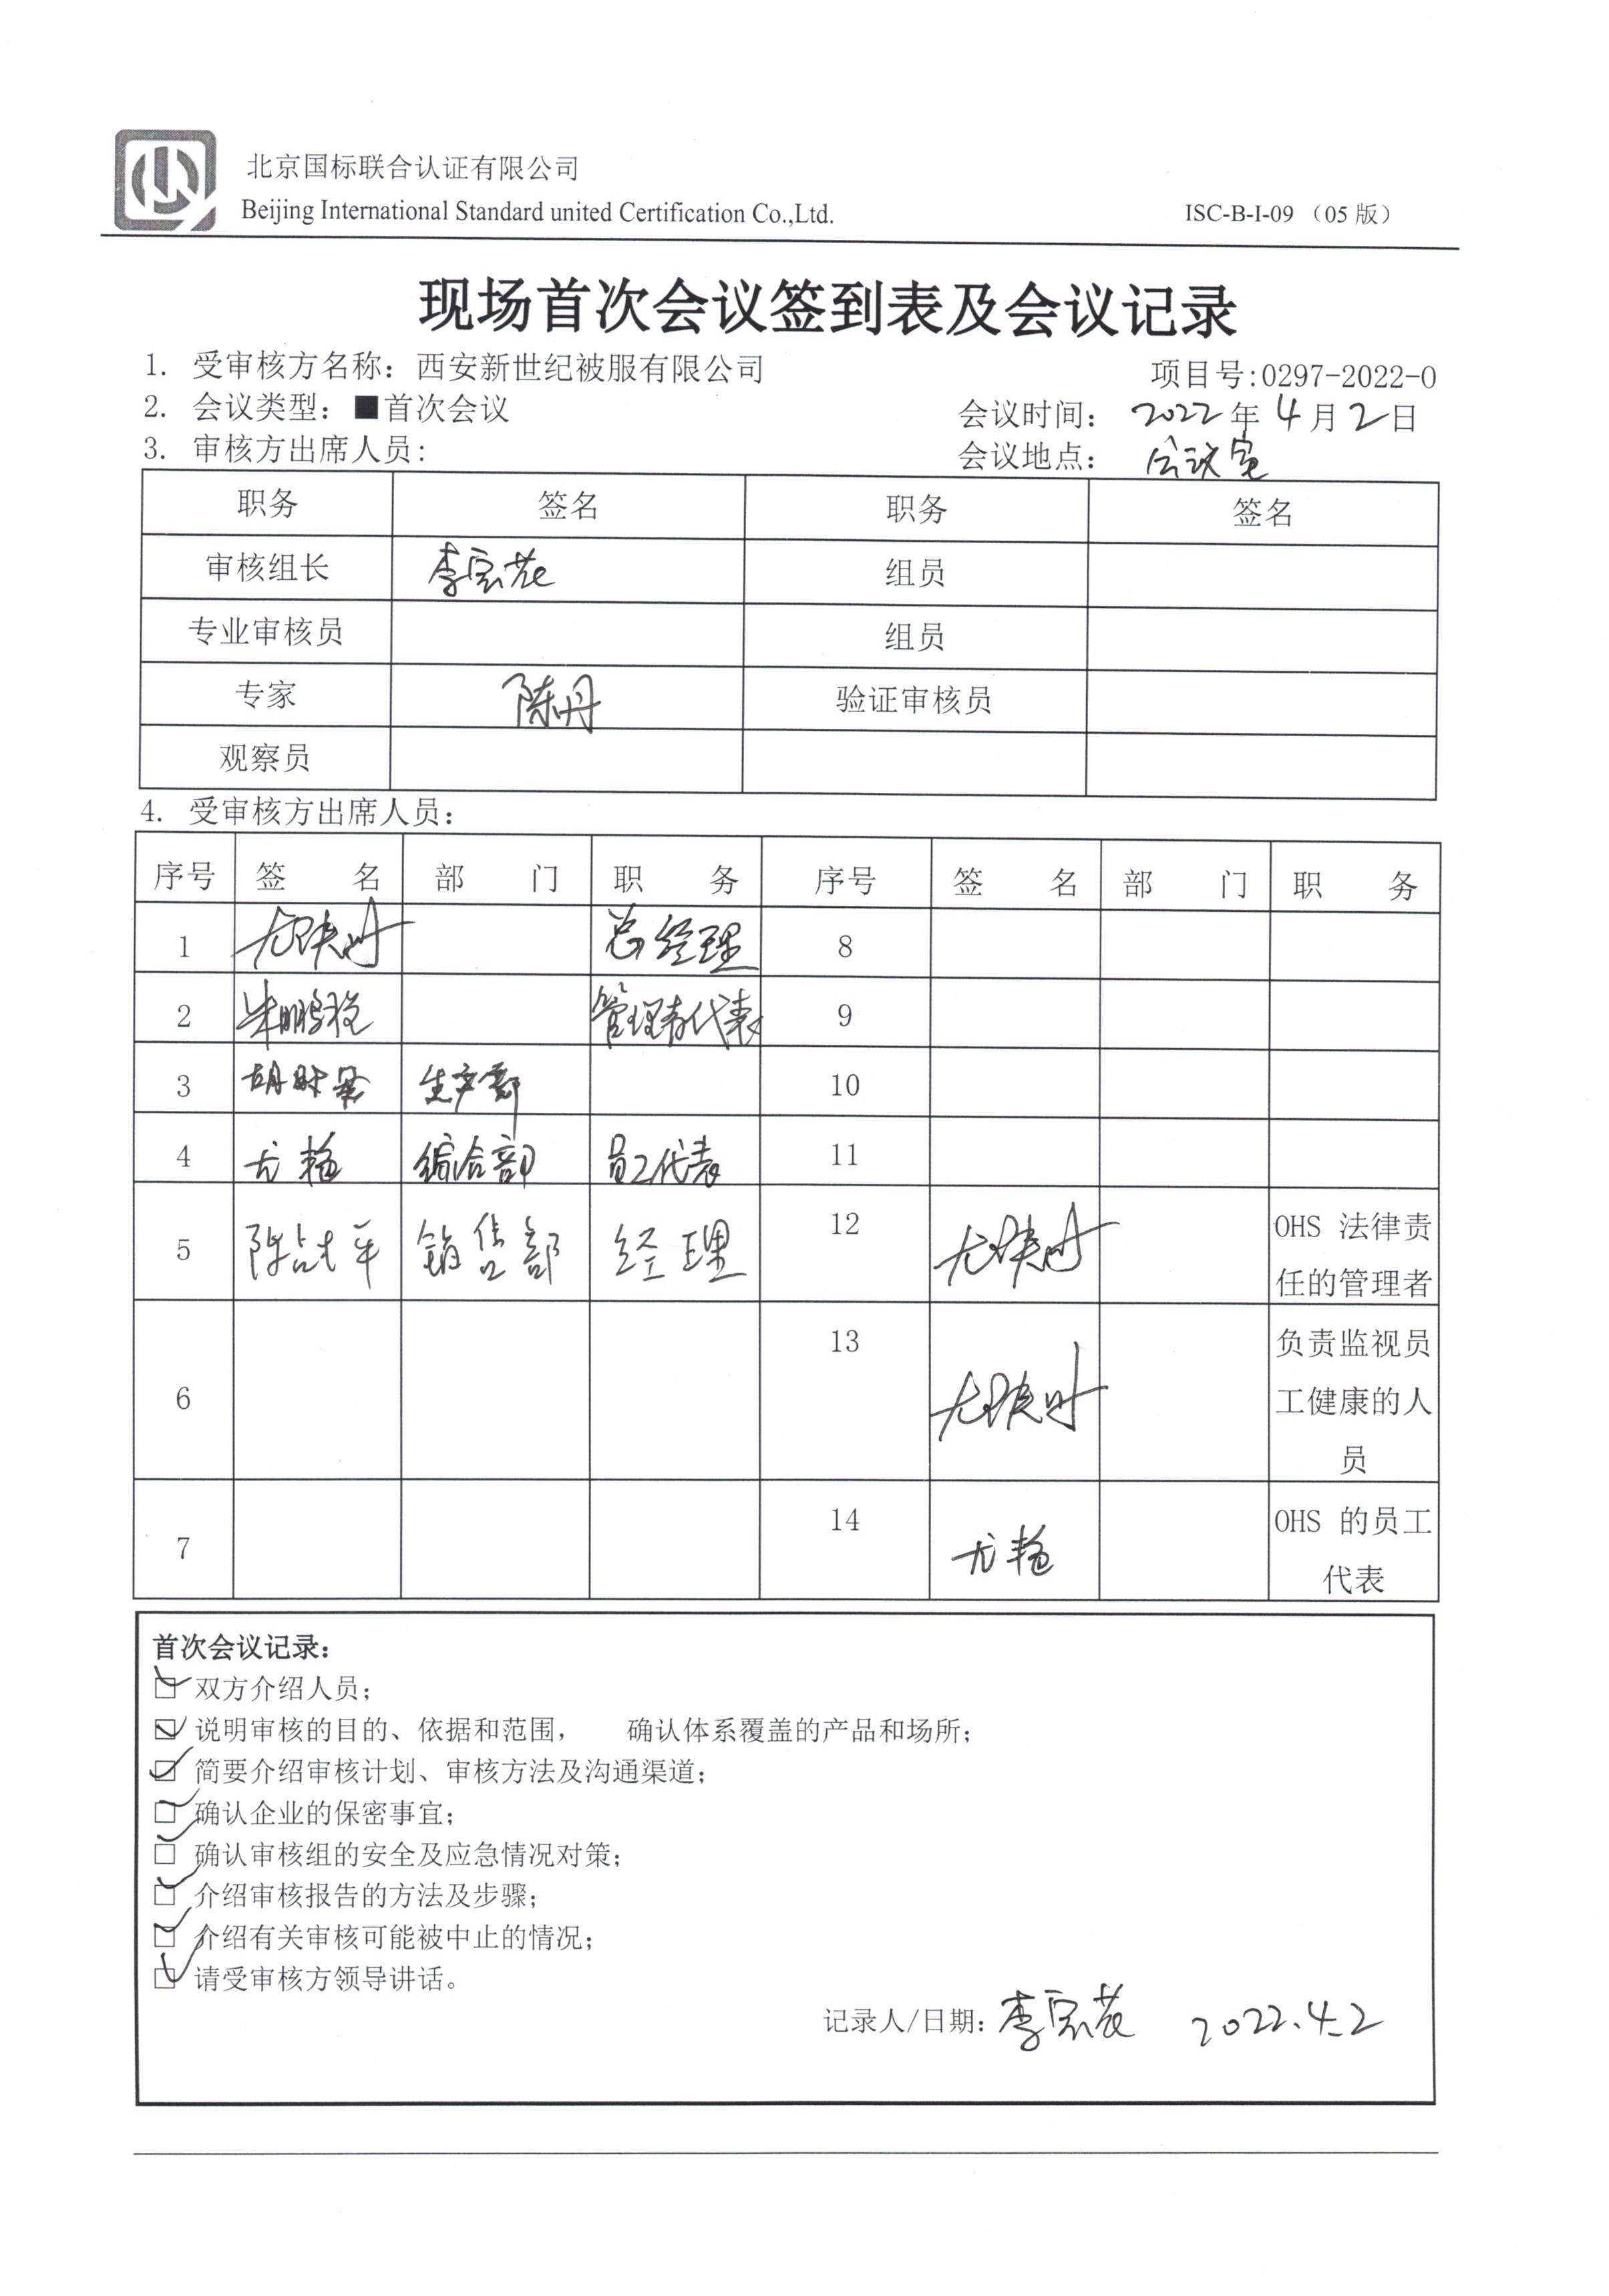 北京国标联合认证有限公司
Beijing International Standard united Certification Co.,Ltd.
ISC-B-I-09 （05版）
现场首次会议签到表及会议记录
1. 受审核方名称：西安新世纪被服有限公司 项目号:0297-2022-O
2. 会议类型：■首次会议 会议时间： 2022年4月2日
3. 审核方出席人员: 会议地点： 会议室
职务 签名 职务 签名
审核组长 李宗花 组员
专业审核员 组员
专家 陈丹 验证审核员
观察员
4. 受审核方出席人员：
序号 签 名 部 门 职 务 序号 签 名 部 门 职 务
1 总经理 8
2 管理者代表 9
3 生产部 10
4 尤艳 综合部 员工代表 11
5 销售部 经理 12 OHS 法律责
任的管理者
6 13 负责监视员
工健康的人
员
7 14 尤艳 OHS 的员工
代表
首次会议记录：
☑ 双方介绍人员；
☑ 说明审核的目的、依据和范围， 确认体系覆盖的产品和场所；
☑ 简要介绍审核计划、审核方法及沟通渠道；
☑ 确认企业的保密事宜；
☑ 确认审核组的安全及应急情况对策；
☑ 介绍审核报告的方法及步骤；
☑ 介绍有关审核可能被中止的情况；
☑ 请受审核方领导讲话。
记录人/日期：李宗花 2022.4.2